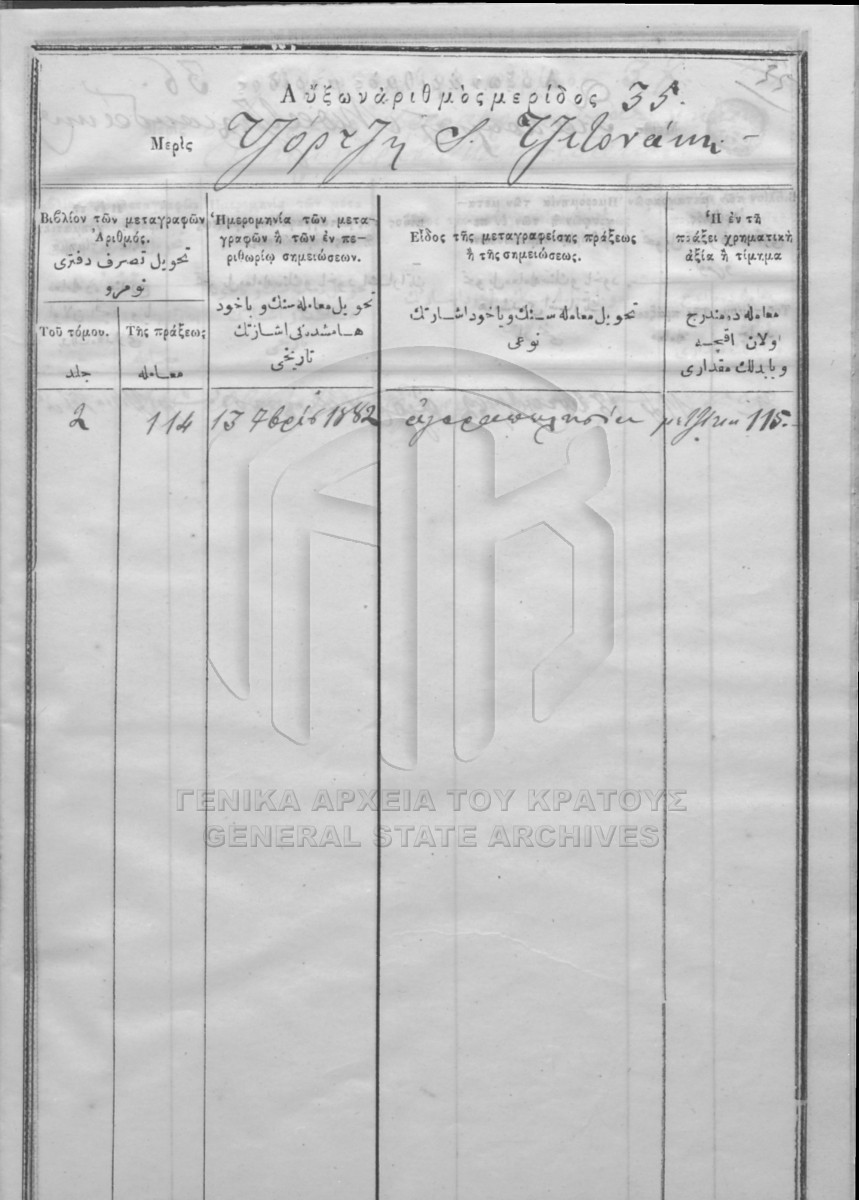 Αὔξων ἀριθμὸς μερίδος 35.
Μερὶς Τζορτζη Τζιτονάκη
Βιβλίον τῶν μεταγραφῶν
Ἀριθμός.
تحويل تصرف دفترى
نومرو
Τοῦ τόμου.
جلد
Τῆς πράξεως
معامله
Ἡμερομηνία τῶν μετα-
γραφῶν ἢ τῶν ἐν πε-
ριθωρίῳ σημειώσεων.
تحويل معامله سنك وياخود
هامشده كى اشارتك
تاريخى
Εἶδος τῆς μεταγραφείσης πράξεως
ἢ τῆς σημειώσεως.
تحويل معامله سنك وياخود اشارتك
نوعى
Ἡ ἐν τῇ
πράξει χρηματικὴ
ἀξία ἢ τίμημα
معامله ده مندرج
اولان اقچه
ويا بدلك مقدارى
2 114 13 7βρίς 1882 ἀγοραπωλησία 115.
ΓΕΝΙΚΑ ΑΡΧΕΙΑ ΤΟΥ ΚΡΑΤΟΥΣ
GENERAL STATE ARCHIVES